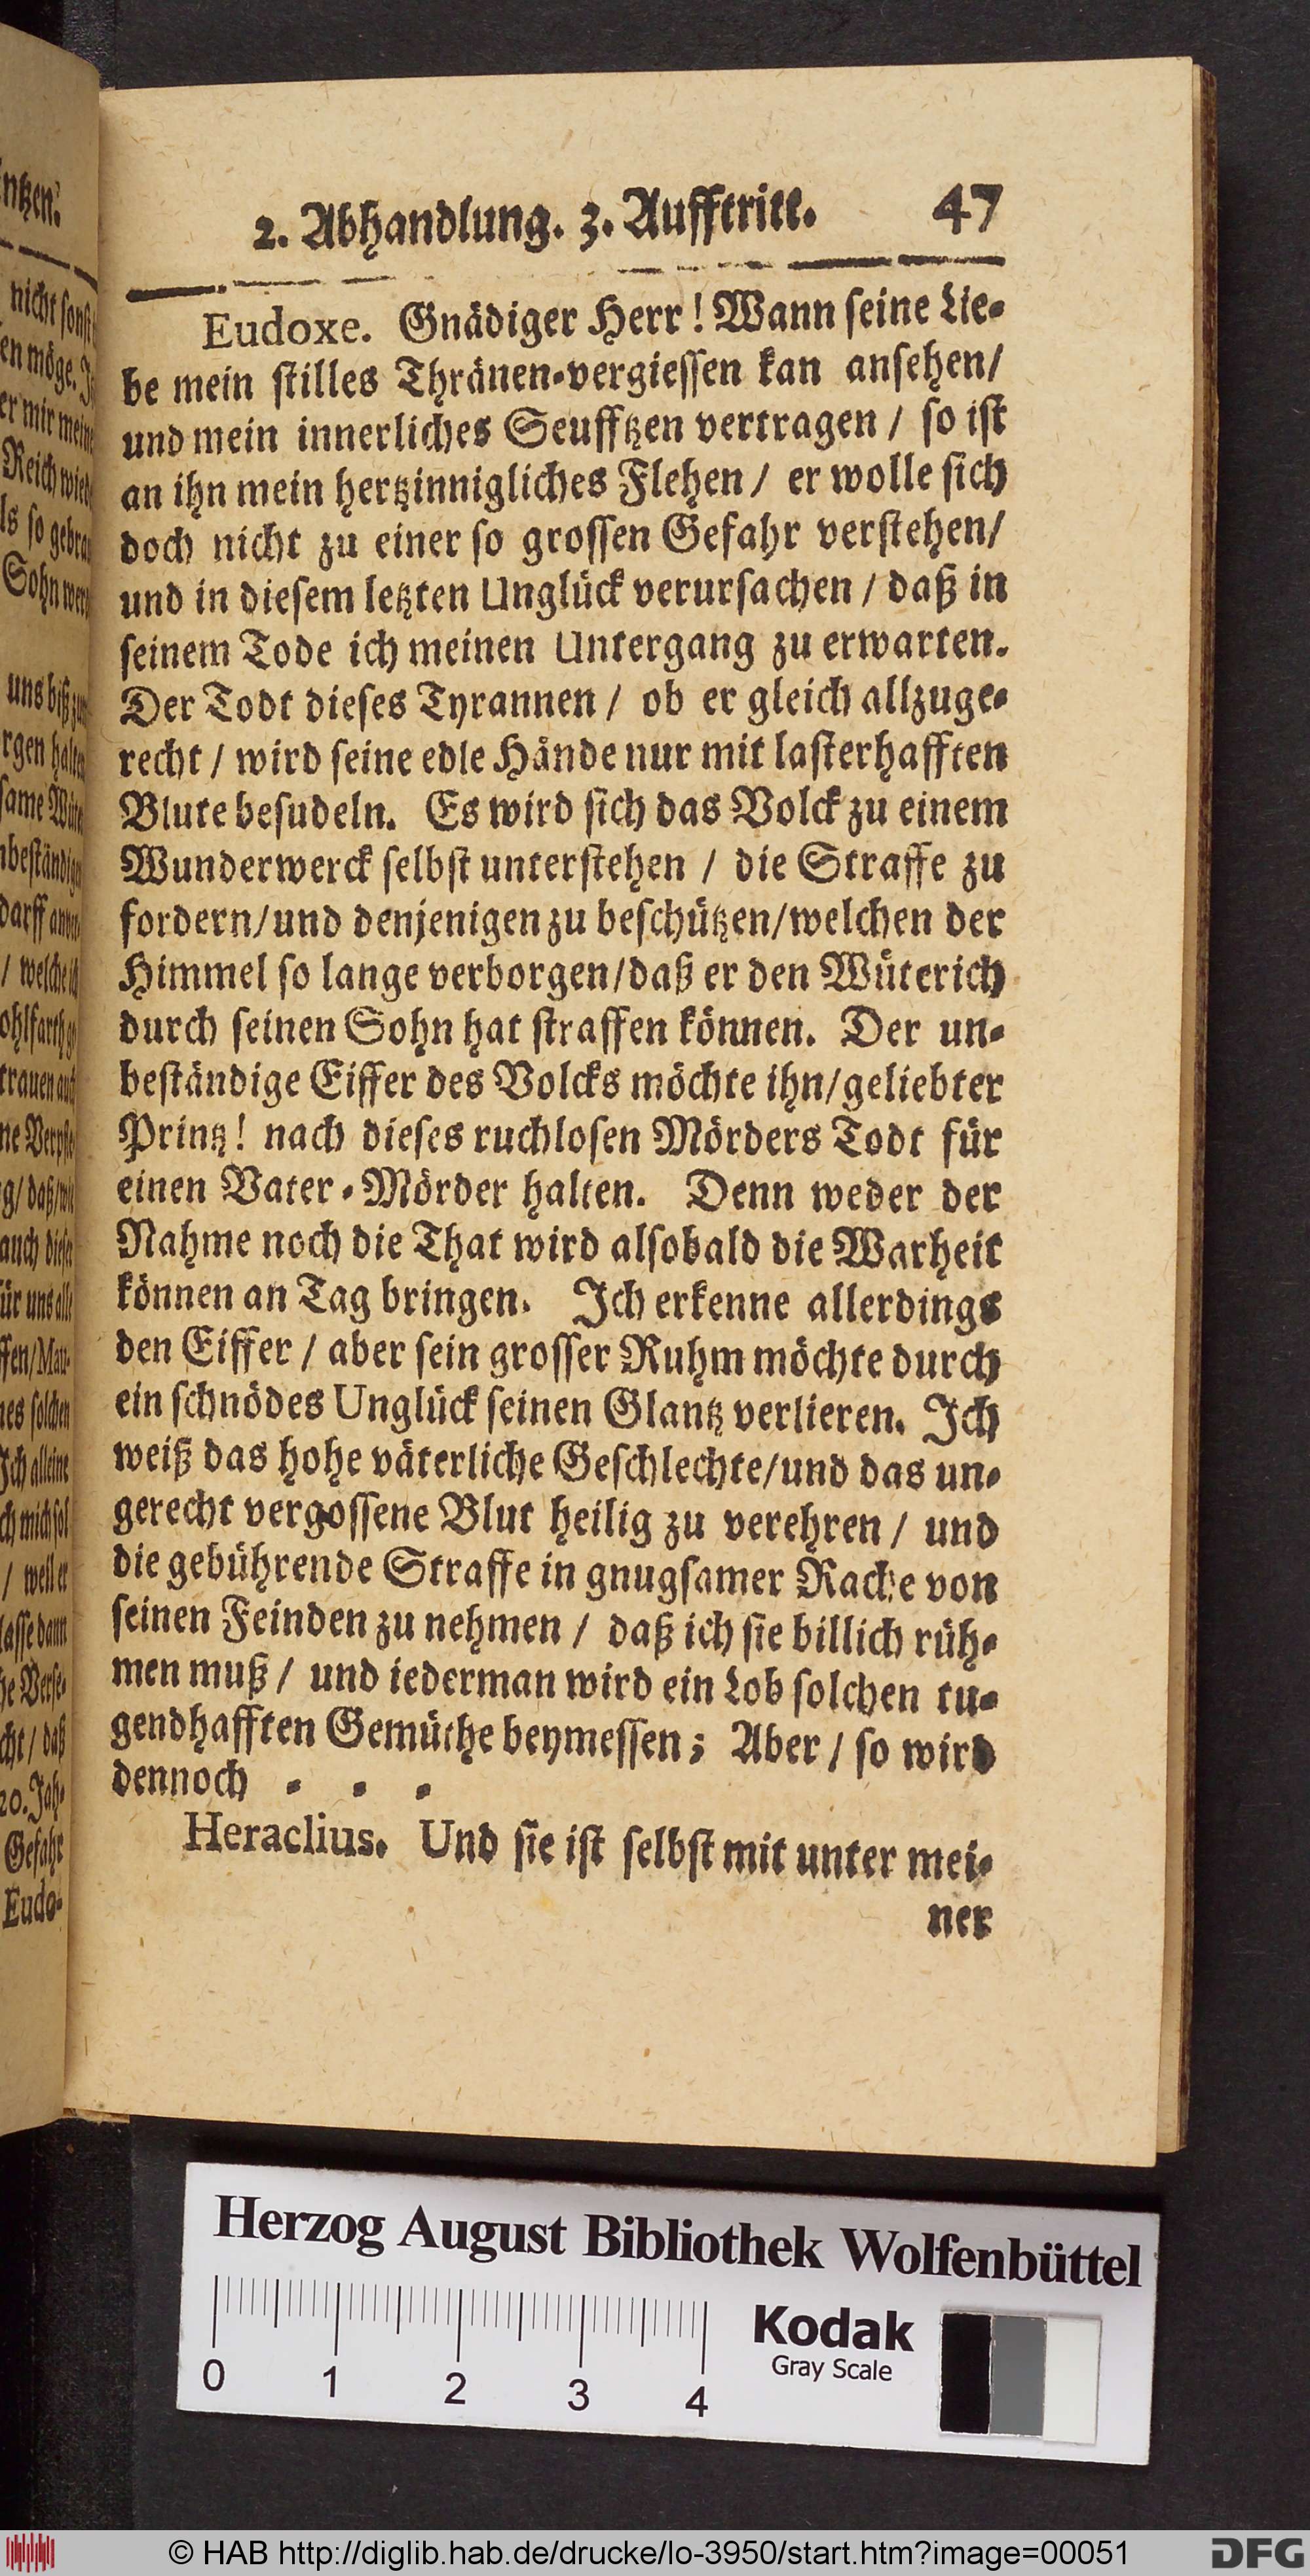 2. Abhandlung. 3. Aufftritt. 47
Eudoxe. Gnädiger Herr! Wann ſeine Lie-
be mein ſtilles Thränen-vergieſſen kan anſehen/
und mein innerliches Seufftzen vertragen / ſo iſt
an ihn mein hertzinnigliches Flehen / er wolle ſich
doch nicht zu einer ſo groſſen Gefahr verſtehen/
und in dieſem letzten Unglück verurſachen / daß in
ſeinem Tode ich meinen Untergang zu erwarten.
Der Todt dieſes Tyrannen / ob er gleich allzuge-
recht / wird ſeine edle Hände nur mit laſterhafften
Blute beſudeln. Es wird ſich das Volck zu einem
Wunderwerck ſelbſt unterſtehen / die Straffe zu
fordern/und denjenigen zu beſchützen/welchen der
Himmel ſo lange verborgen/daß er den Wüterich
durch ſeinen Sohn hat ſtraffen können. Der un-
beſtändige Eiffer des Volcks möchte ihn/geliebter
Printz! nach dieſes ruchloſen Mörders Todt für
einen Vater-Mörder halten. Denn weder der
Nahme noch die That wird alſobald die Warheit
können an Tag bringen. Ich erkenne allerdings
den Eiffer / aber ſein groſſer Ruhm möchte durch
ein ſchnödes Unglück ſeinen Glantz verlieren. Ich
weiß das hohe väterliche Geſchlechte/und das un-
gerecht vergoſſene Blut heilig zu verehren / und
die gebührende Straffe in gnugſamer Rache von
ſeinen Feinden zu nehmen / daß ich ſie billich rüh-
men muß / und iederman wird ein Lob ſolchen tu-
gendhafften Gemüthe beymeſſen; Aber / ſo wird
dennoch - - -
Heraclius. Und ſie iſt ſelbſt mit unter mei-
ner
ntzen.
nicht ſonſt
en möge.
er mir meine
Reich wied
ls ſo gebra
Sohn wer
uns biß zu
rgen halte
ſame Wüte
beſtändige
darff
/ welche
ohlfarth
trauen auch
g/ daß
auch dieſer
ür uns alle
ffen/Mau-
es ſolchen
Ich alleine
ch mich ſol
/ weil er
laſſe dann
cht / daß
20. Jah-
Gefahr
Eudo-
Herzog August Bibliothek Wolfenbüttel
0 1 2 3 4
Kodak
Gray Scale
© HAB http://diglib.hab.de/drucke/lo-3950/start.htm?image=00051
DFG